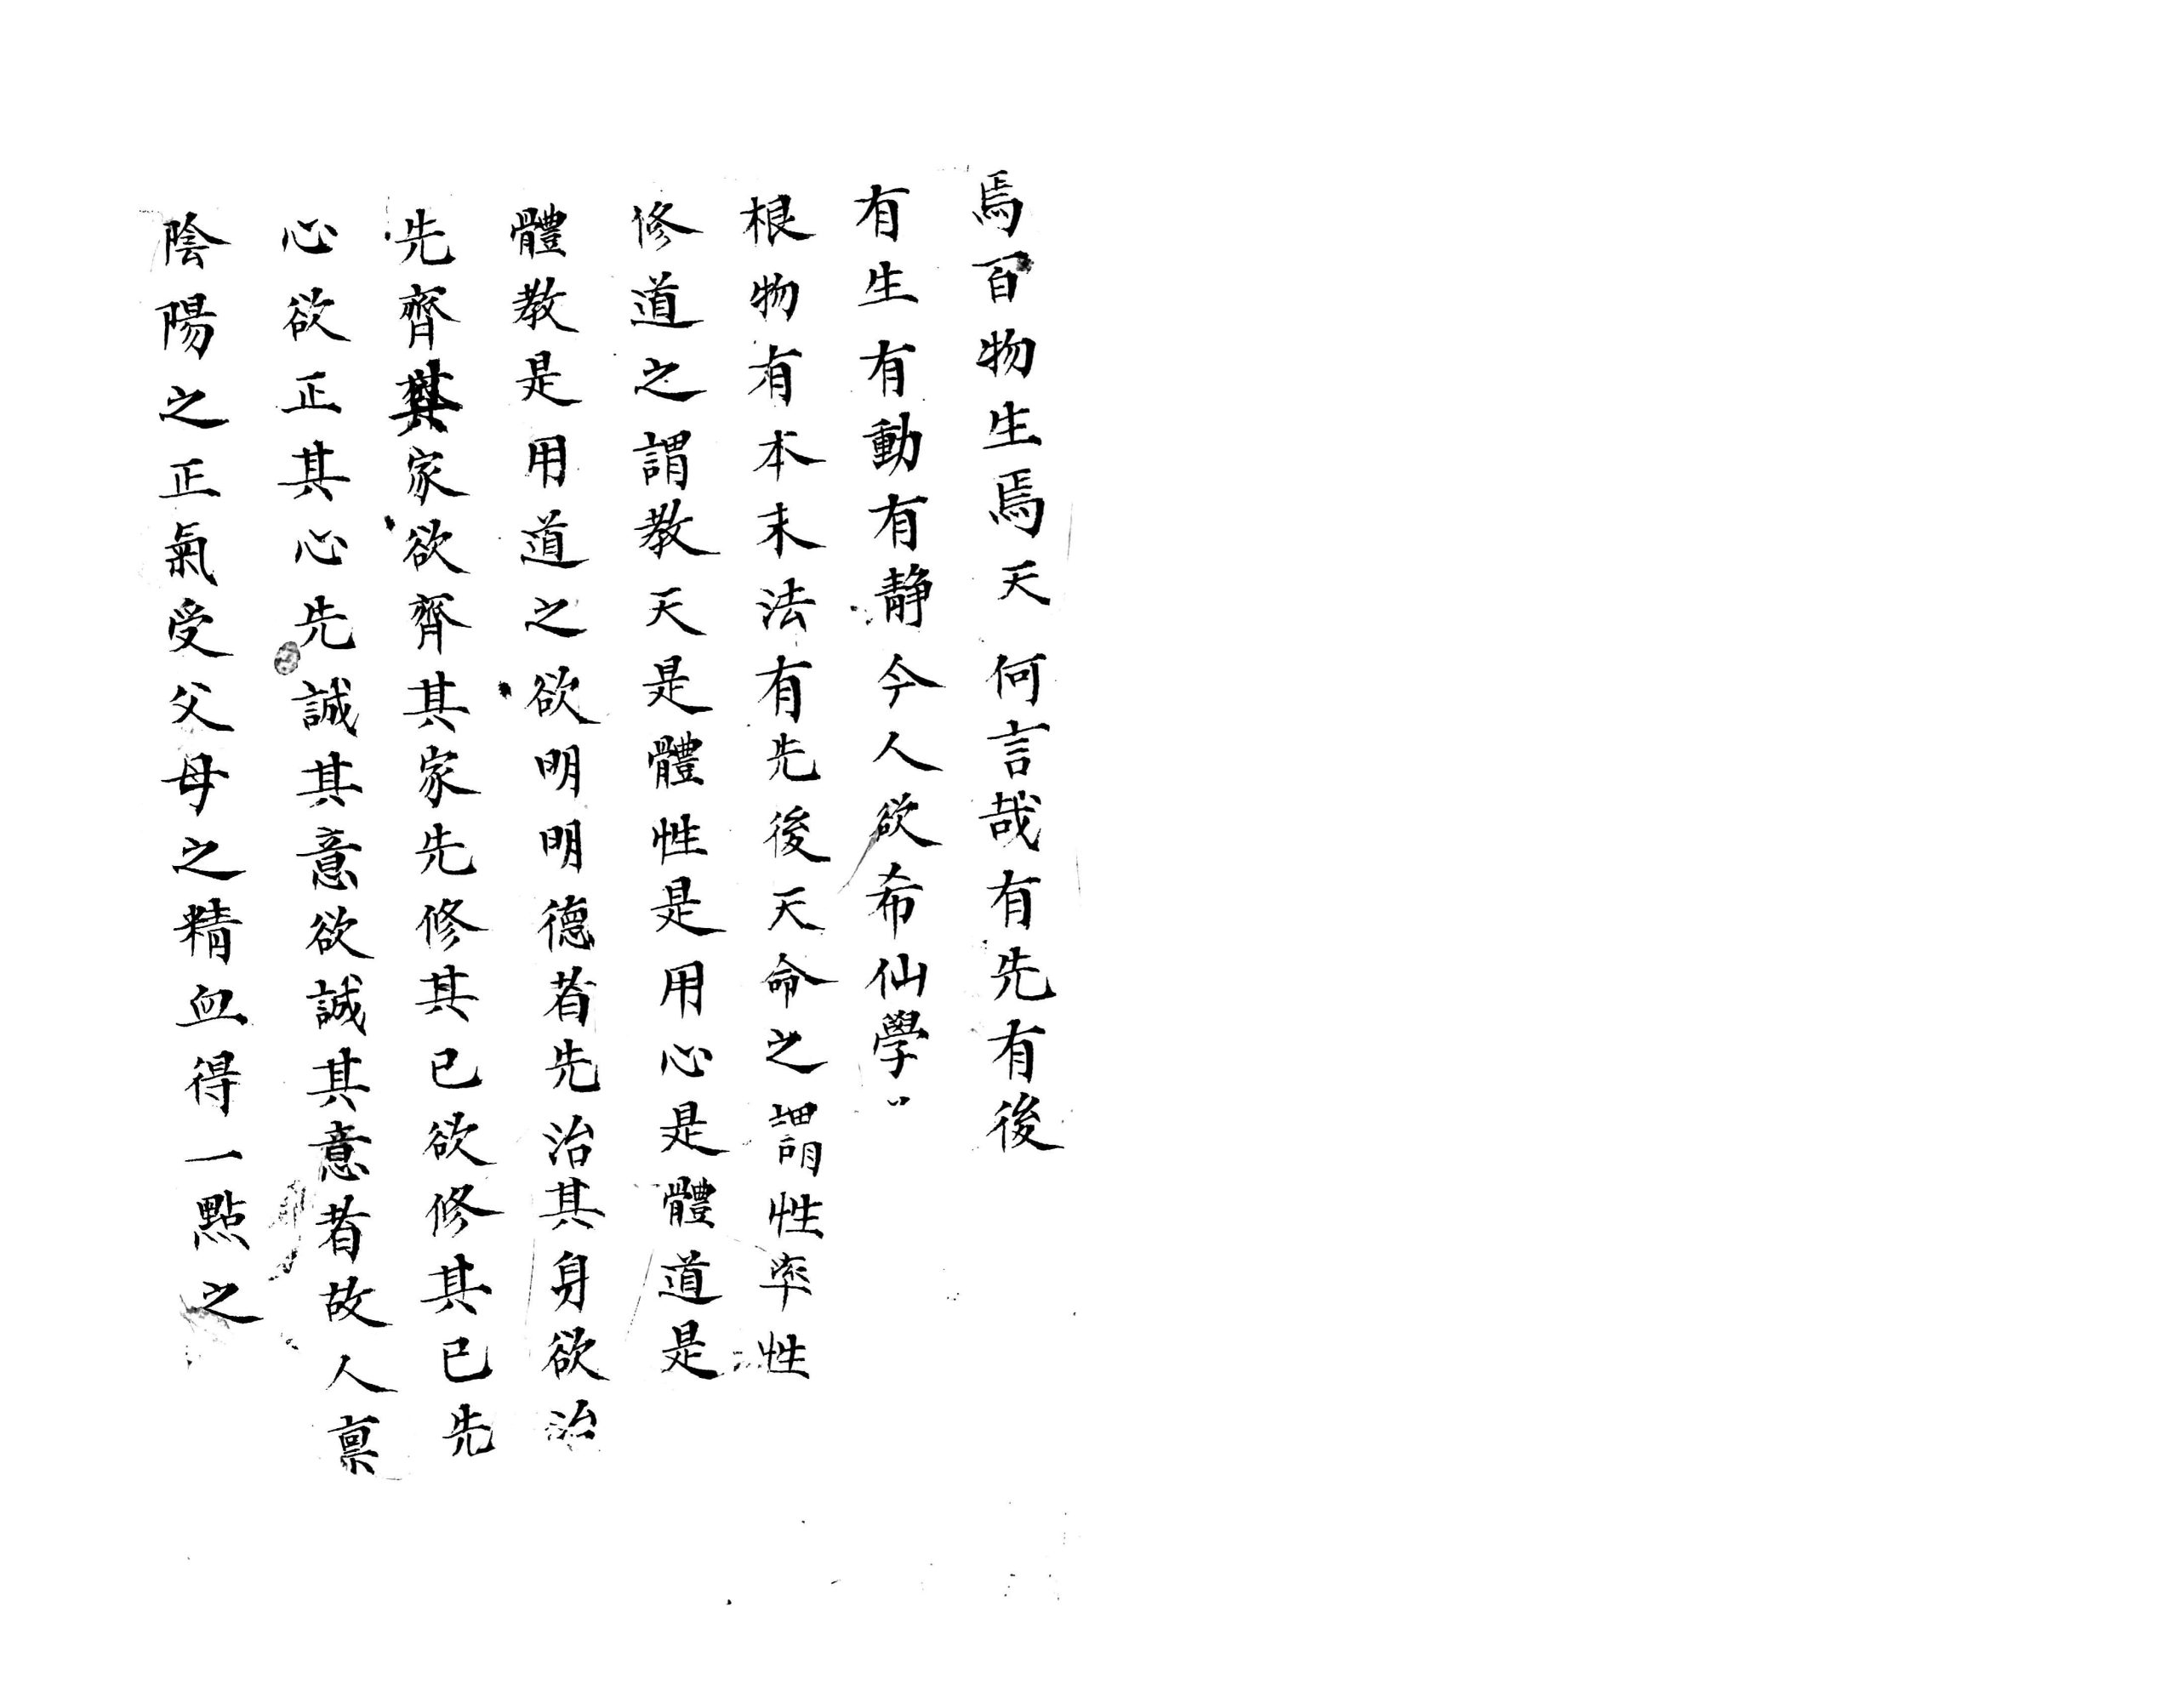 焉百物生焉天何言哉有先有後
有生有動有靜今人欲希仙學〃
根物有本末法有先後天命之謂性率性
修道之謂教天是體性是用心是體道是
體教是用道之欲明明德者先治其身欲治
先齊其家欲齊其家先修其已欲修其已先
心欲正其心先誠其意欲誠其意者故人禀
陰陽之正氣受父母之精血得一點之